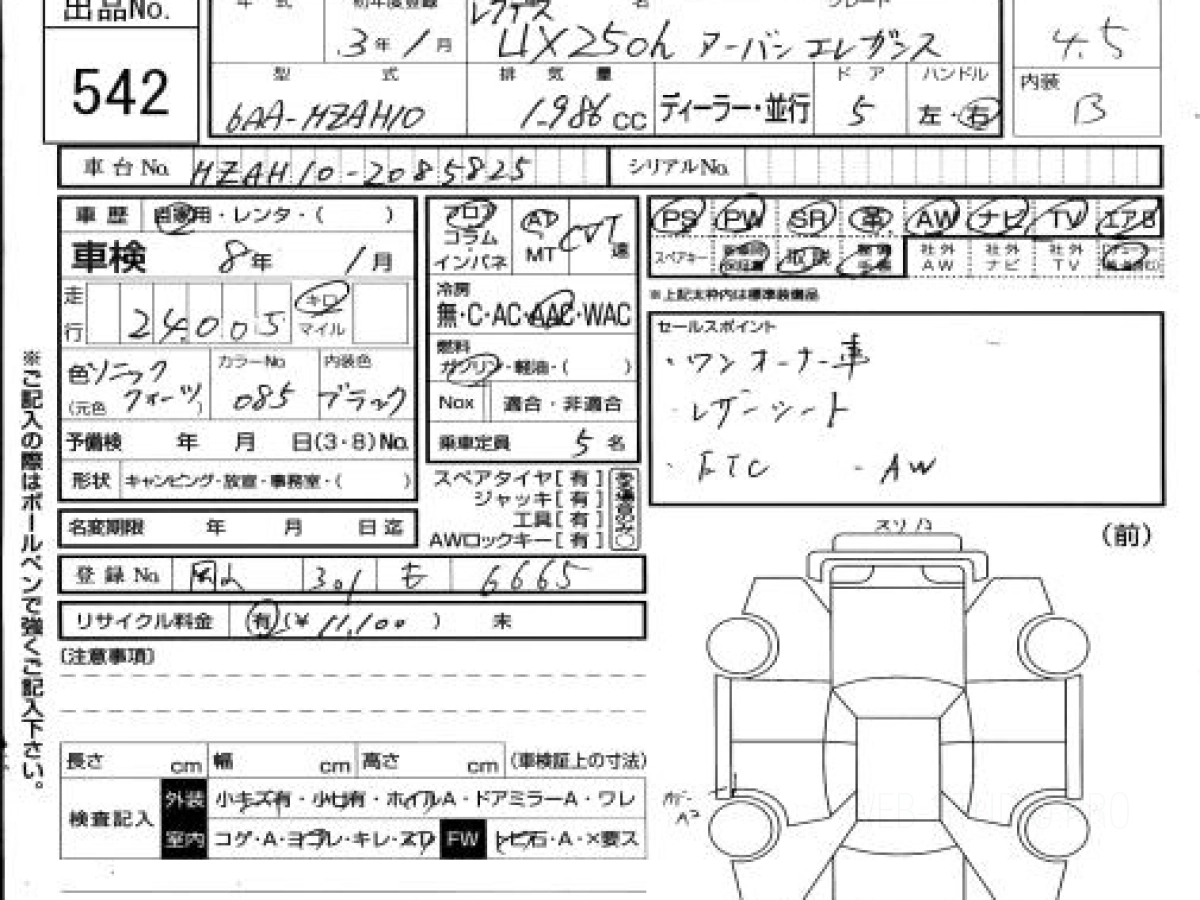 出品No.
542
年 式 初年度登録 名 グレード
3年 1月
レクサス
UX250h アーバンエレガンス
4.5
型 式
6AA-MZAH10
排 気 量
1.986 cc
ディーラー・並行
ド ア
5
ハンドル
左・右
内装
B
車台No. MZAH10-2085825
シリアルNo.
車歴 自家用・レンタ・( )
車検 8年 1月
走行 24,005 キロ マイル
色 ソニッククォーツ
(元色 )
カラーNo
085
内装色
ブラック
予備検 年 月 日(3・8)No.
形状 キャンピング・放宣・事務室・( )
名変期限 年 月 日迄
フロア
コラム
インパネ
AT
MT
CVT 速
冷房
無・C・AC・AAC・WAC
燃料
ガソリン・軽油・( )
Nox 適合・非適合
乗車定員 5 名
スペアタイヤ[有]
ジャッキ[有]
工具[有]
AWロックキー[有]
PS PW SR 革 AW ナビ TV エアB
スペアキー 取説 社外AW 社外ナビ 社外TV
※上記太枠内は標準装備品
セールスポイント
・ワンオーナー車
・レザーシート
・ETC ・AW
登録No. 岡山 301 も 6665
リサイクル料金 有(¥ 11,100 ) 未
〔注意事項〕
長さ cm 幅 cm 高さ cm (車検証上の寸法)
検査記入
外装 小キズ有・小凹有・ホイルA・ドアミラーA・ワレ
室内 コゲ・A・ヨゴレ・キレ・スレ FW トビ石・A・×要ス
スリハ
(前)
ガリー
A2
※ご記入の際はボールペンで強くご記入下さい。